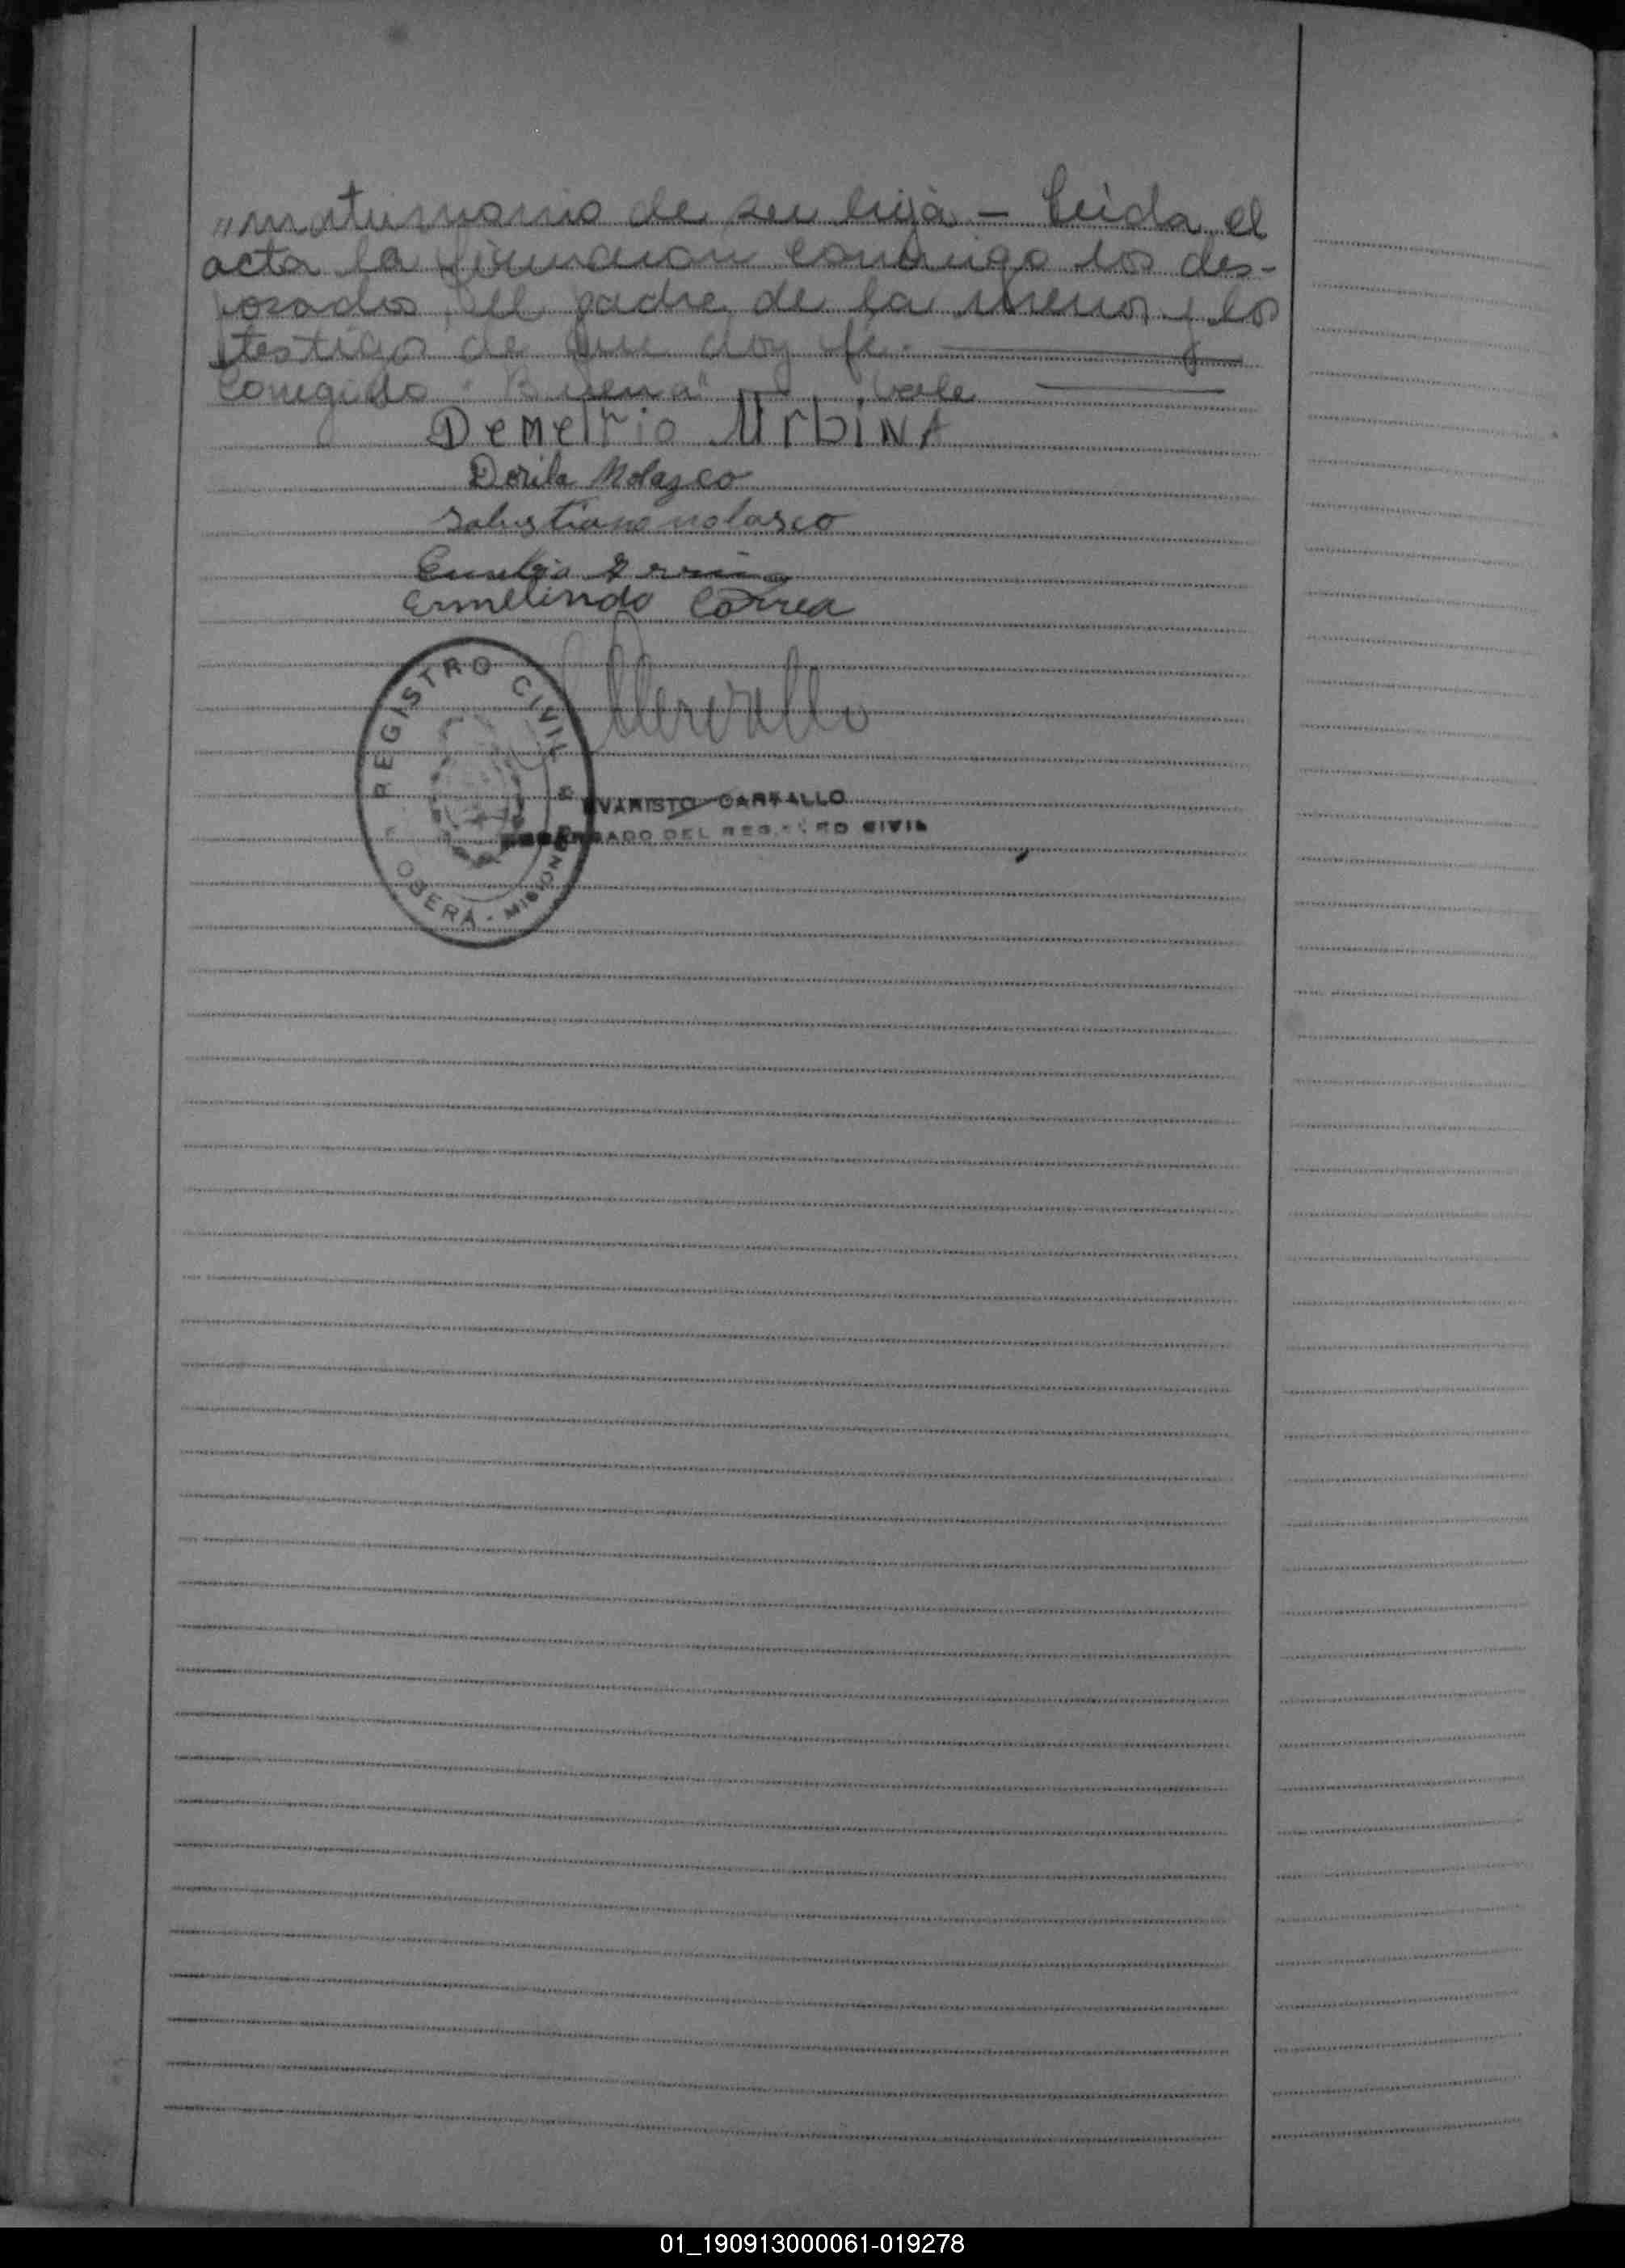 "matrimonio de su hija - Leida el
acta la firmaron conmigo los des-
posados, el padre de la menor y los
testigos de que doy fe.
Corregido "Buena" vale
Demetrio UrbiNA
Dorila Nolazco
Salustiano nolasco
Eusebio
Ermelindo Correa
REGISTRO CIVIL
OBERA - MISIONES
EVARISTO CARVALLO
ENCARGADO DEL REGISTRO CIVIL
01_190913000061-019278